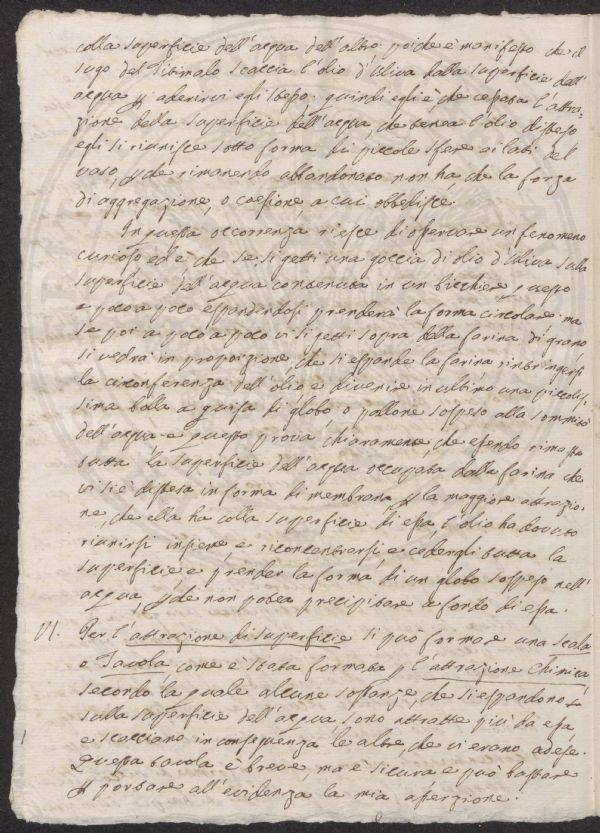 colla superficie dell'acqua dell'altro. poiche è manifesto che il
sugo del Titimalo scaccia l'olio d'Uliva dalla superficie dell'
acqua p aderirvi egli stesso. quindi egli è che cessata l'attra-
zione della superficie dell'acqua, che tenea l'olio disteso
egli si riunisce sotto forma di piccole sfere ai lati del
vaso, p che rimanendo abbandonato non ha, che la forza
di aggregazione, o coesione a cui obbedisce.
In questa occorrenza riesce di osservare un fenomeno
curioso ed è che se si getti una goccia di olio d'Uliva sulla
superficie dell'acqua contenuta in un bicchiere, presto
a poco a poco espandendosi prenderà la forma circolare: ma
se poi a poco a poco vi si getti sopra della farina di grano
si vedrà in proporzione, che si espande la farina rinstringersi
la circonferenza dell'olio e divenire in ultimo una piccolis-
sima bolla a guisa di globo, o pallone sospeso alla sommità
dell'acqua. e questo prova chiaramente, che essendo rimasta
tutta la superficie dell'acqua occupata dalla farina che
vi si è distesa in forma di membrana p la maggiore attrazio-
ne, che ella ha colla superficie di essa, l'olio ha dovuto
riunirsi insieme, e riconcentrarsi, e cedergli tutta la
superficie e prender la forma di un globo sospeso nell'
acqua, p che non potea precipitare a fondo di essa.
VI. Per l'attrazione di superficie si può formare una scala
o Tavola come è stata formata p l'attrazione Chimica
secondo la quale alcune sostanze, che si espandono
sulla superficie dell'acqua sono attratte più da essa
e scacciano in conseguenza le altre, che vi erano adese.
Questa tavola è breve, ma è sicura e può bastare
p portare all'evidenza la mia asserzione.